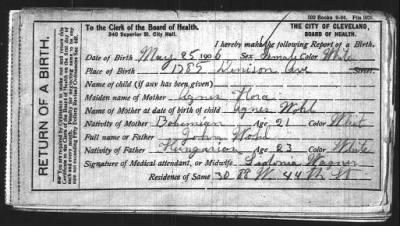 100 Books 9-04. File 1876.
To the Clerk of the Board of Health.
340 Superior St. City Hall.
THE CITY OF CLEVELAND,
BOARD OF HEALTH.
I hereby make the following Report of a Birth.
Date of Birth May 25 1906 Sex Female Color White
Place of Birth 1785 Denison Ave Street.
Name of child (if any has been given)
Maiden name of Mother Agnes Flora
Name of Mother at date of birth of child Agnes Wohl
Nativity of Mother Bohemian Age 21 Color White
Full name of Father John Wohl
Nativity of Father Hungarian Age 23 Color White
Signature of Medical attendant, or Midwife Sidonia Wagner
Residence of Same 3088 W. 44th St
RETURN OF A BIRTH.